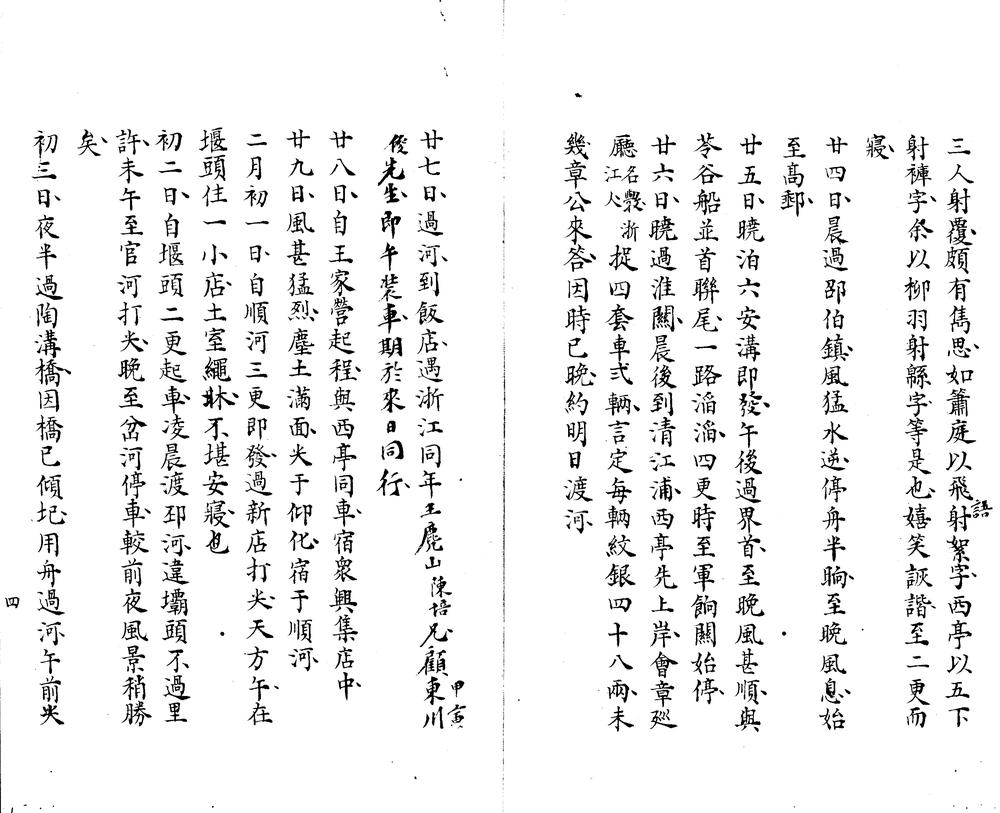 三人射覆頗有雋思如簫庭以飛射絮字西亭以五下
語
射褲字余以柳羽射緜字等是也嬉笑詼諧至二更而
寢
廿四日晨過邵伯鎮風猛水逆停舟半晌至晚風息始
至高郵
廿五日曉泊六安溝即發午後過界首至晚風甚順與
苓谷船並首聯尾一路滔滔四更時至軍餉關始停
廿六日曉過淮關晨後到清江浦西亭先上岸會章廵
廳名斅浙江人捉四套車弍輛言定每輛紋銀四十八兩未
幾章公來答因時已晚約明日渡河
廿七日過河到飯店遇浙江同年王麓山陳培兄顧東川甲寅
俊先生即午裝車期於來日同行
廿八日自王家營起程與西亭同車宿衆興集店中
廿九日風甚猛烈塵土滿面尖于仰化宿于順河
二月初一日自順河三更即發過新店打尖天方午在
堰頭住一小店土室繩牀不堪安寢也
初二日自堰頭二更起車凌晨渡邳河違壩頭不過里
許未午至官河打尖晚至岔河停車較前夜風景稍勝
矣
初三日夜半過陶溝橋因橋已傾圮用舟過河午前尖
四